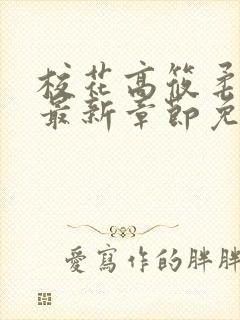 校花高筱柔
最新章節免
愛寫作的胖胖